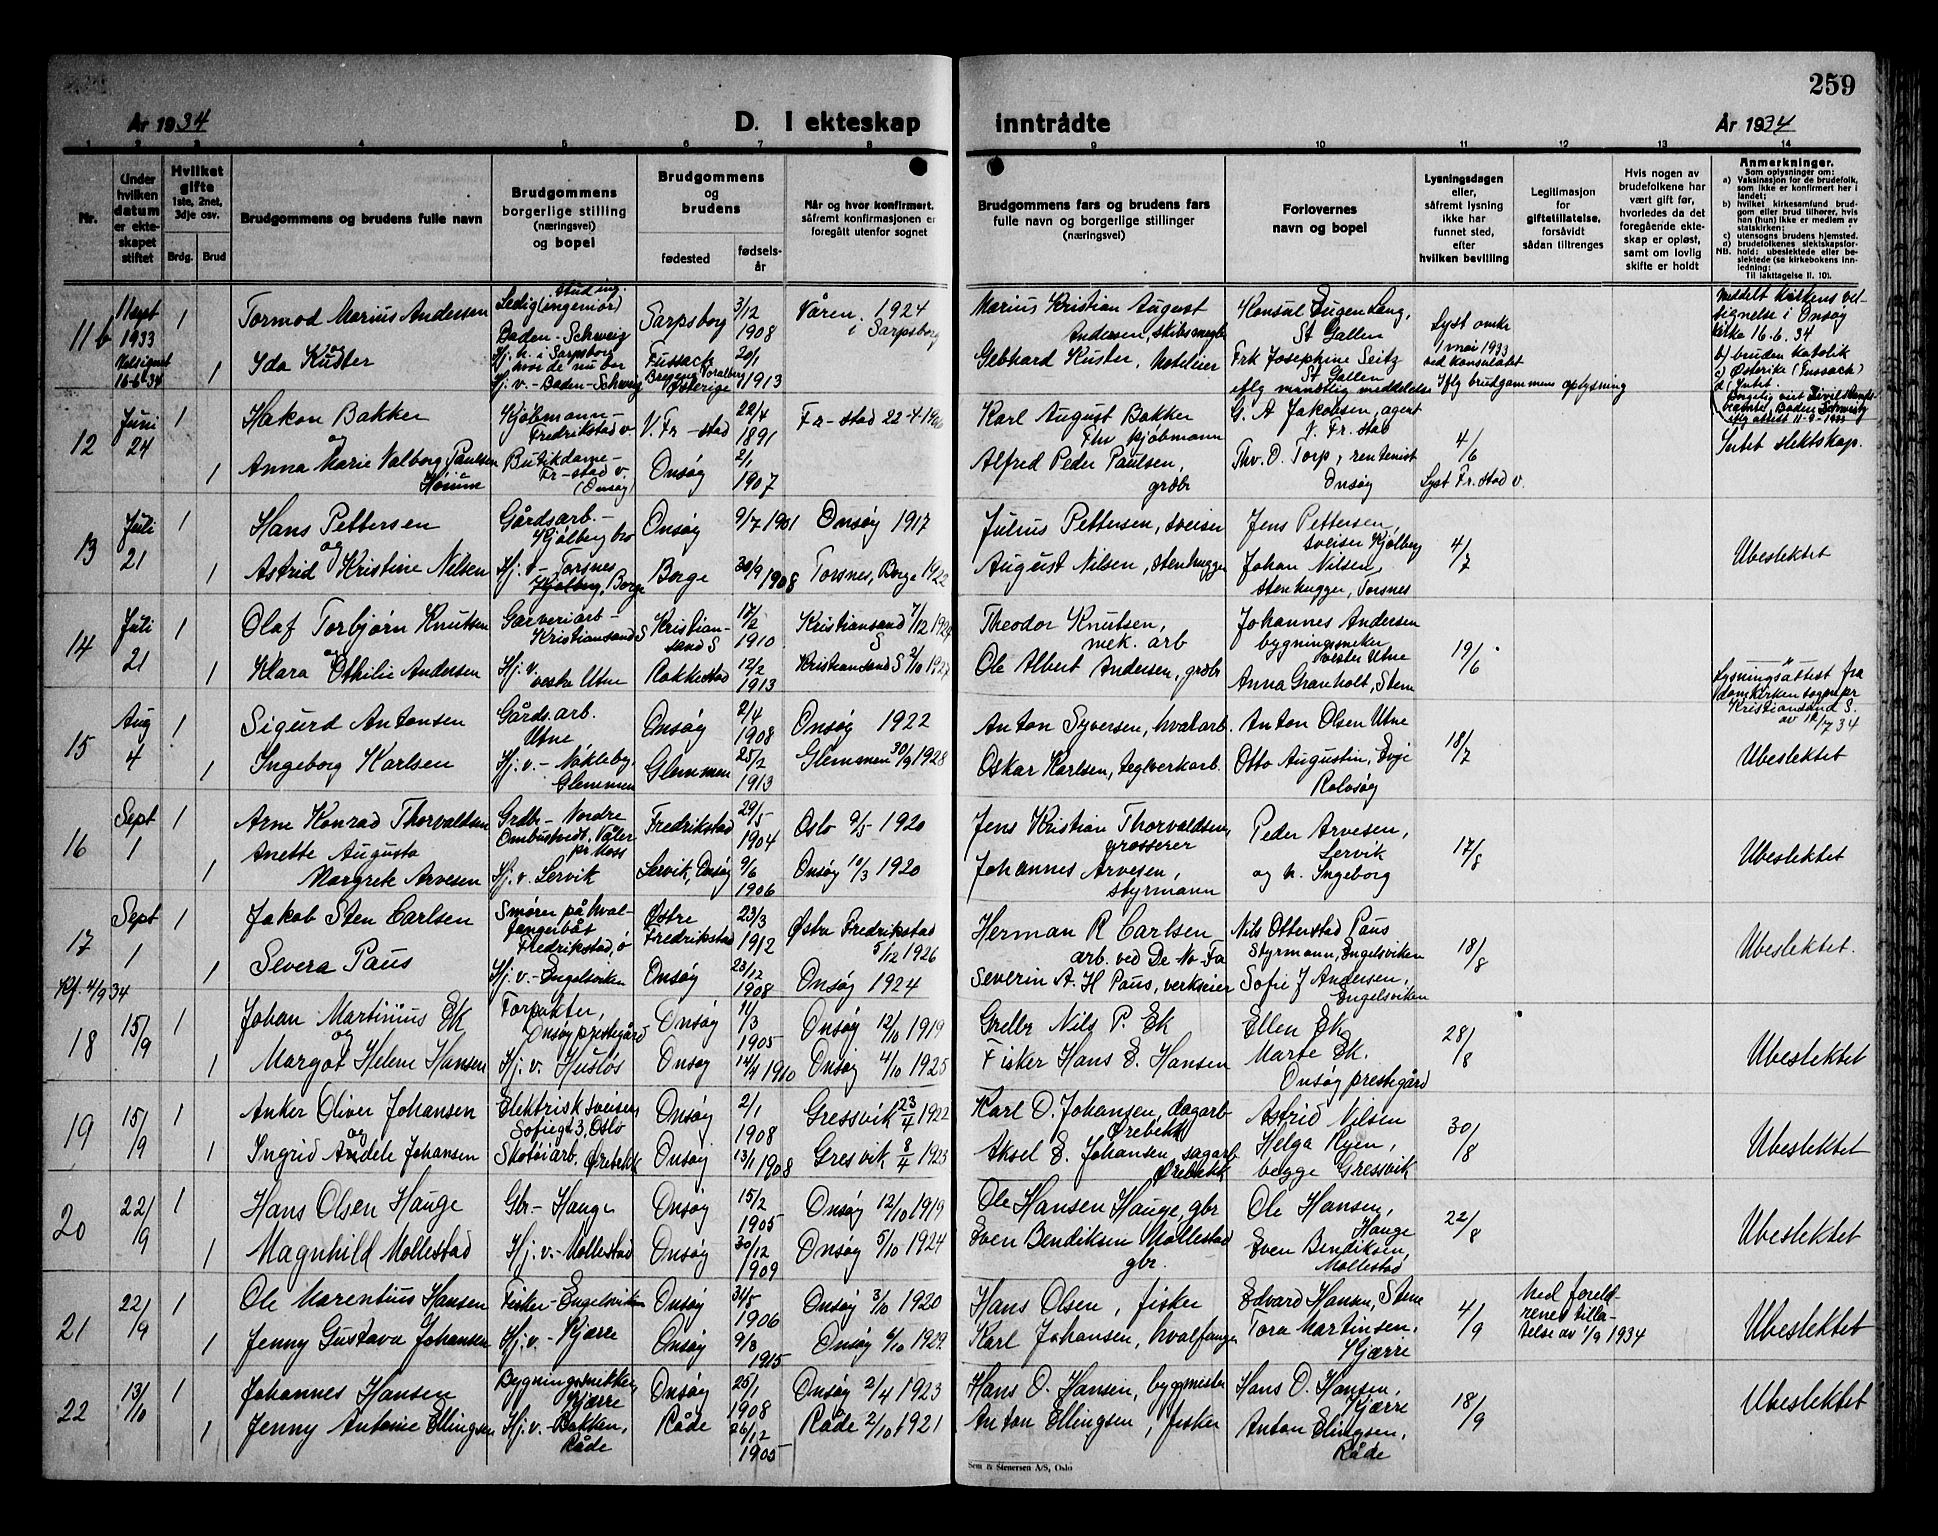 259
År 1934
D. I ekteskap
inntrådte
År 1934
1 2 3 4 5 6 7 8 9 10 11 12 13 14
Nr.
Under hvilken datum er ekteskapet stiftet
Hvilket gifte 1ste, 2net, 3dje osv.
Brdg. Brud
Brudgommens og brudens fulle navn
Brudgommens borgerlige stilling (næringsvei) og bopel
Brudgommens og brudens
fødested
fødselsår
Når og hvor konfirmert, såfremt konfirmasjonen er foregått utenfor sognet
Brudgommens fars og brudens fars fulle navn og borgerlige stillinger (næringsvei)
Forlovernes navn og bopel
Lysningsdagen eller, såfremt lysning ikke har funnet sted, efter hvilken bevilling
Legitimasjon for giftetillatelse, forsåvidt sådan tiltrenges
Hvis nogen av brudefolkene har vært gift før, hvorledes da det foregående ekteskap er opløst, samt om lovlig skifte er holdt
Anmerkninger.
Som oplysninger om:
a) Vaksinasjon for de brudefolk, som ikke er konfirmert her i landet;
b) hvilket kirkesamfund brudgom eller brud tilhører, hvis han (hun) ikke er medlem av statskirken;
c) utensogns brudens hjemsted.
d) brudefolkenes slektskapsforhold: ubeslektede eller beslektede (se kirkebokens innledning:
Til iakttagelse II. 10).
11b 11 sept 1933 Velsignet 16-6-34
1 Tormod Marius Andersen
stud ing. Ledig (ingeniør) Baden-Schweig
Sarpsborg 3/12 1908 Våren 1924 i Sarpsborg
Marius Kristian August Andersen, skibsmegler
Konsul Eugen Lang, St Gallen
Lyst omkr 1 mai 1933 ved konsulatet
Meddelt kirkens velsignelse i Onsøy kirke 16.6.34
og
1 Ida Kuster
Hj. h. i Sarpsborg hvor de nu bor
Hj. v. - Baden-Schweig
Fussach Bregenz Voralberg Østerige 20/1 1913
Gebhard Kuster, Hotelier
Frk Josephine Seitz St Gallen
eflg mundtlig meddelelse
Iflg brudgommens oplysning
b) bruden katolik
c) Østerike (Fussach)
d) Intet
12 Juni 24
1 Hakon Bakker
Kjøbmann - Fredrikstad v
V. Fr-stad 22/4 1891 Fr-stad 22-4-1906
Karl August Bakker Fhv kjøbmann
G. A Jakobsen, agent V. Fr. stad
4/6
Lyst Fr. stad v.
Intet slektskap.
og
1 Anna Marie Valborg Paulsen Hörum
Butikdame - Fr-stad v (Onsøy)
Onsøy 2/1 1907
Alfred Peder Paulsen, grdbr
Thv. O. Torp, rentenist Onsøy
13 Juli 21
1 Hans Pettersen
Gårdsarb. - Kjølberg bro
Onsøy 9/7 1901 Onsøy 1917
Julius Pettersen, sveiser
Jens Pettersen, sveiser Kjølberg
4/7
Ubeslektet
og
1 Astrid Kristine Nilsen
Hj. v - Torsnes Kjølberg, Borge
Borge 30/9 1908 Torsnes, Borge 1922
August Nilsen, stenhugger
Johan Nilsen, stenhugger, Torsnes
14 Juli 21
1 Olaf Torbjørn Knutsen
Garveriarb - Kristiansand S
Kristiansand S 17/2 1910 Kristiansand S 7/12 1924
Theodor Knutsen, mek. arb
Johannes Andersen bygningssneker vestre Utne
19/6
og
1 Klara Othilie Andersen
Hj. v. vestre Utne
Rakkestad 12/2 1913 Kristiansand S 2/10 1927
Ole Albert Andersen, grdbr
Anna Granholt, Stene
Lysningsattest fra domkirken sogn pr Kristiansand S. av 12/7 34
15 Aug 4
1 Sigurd Antonsen
Gårds.arb. Utne
Onsøy 2/4 1908 Onsøy 1922
Anton Syversen, hvalarb.
Anton Olsen Utne
18/7
Ubeslektet
1 Ingeborg Karlsen
Hj. v. - Nøkleby, Glemmen
Glemmen 25/2 1913 Glemmen 30/9 1928
Oskar Karlsen, teglverkarb.
Otto Augustin, Evje Rolvsøy
16 Sept 1
1 Arne Konrad Thorvaldsen
Grdbr - Nordre Ombustvedt, Våler pr. Moss
Fredrikstad 29/5 1904 Oslo 9/5 1920
Jens Kristian Thorvaldsen, grosserer
Peder Arvesen, Lervik
17/8
Ubeslektet
1 Anette Augusta Margrete Arvesen
Hj. v. Lervik
Lervik, Onsøy 9/6 1906 Onsøy 10/3 1920
Johannes Arvesen, styrmann
og h. Ingeborg
17 Sept 1
Kf. 4/9 34
1 Jakob Sten Carlsen
Smører på hvalfangerbåt Fredrikstad, ö
Østre Fredrikstad 23/3 1912 Østre Fredrikstad 5/12 1926
Herman R Carlsen arb. ved De-No-Fa
Nils Otterstad Paus Styrmann, Engelsviken
18/8
Ubeslektet.
1 Severa Paus
Hj. v. - Engelsviken
Onsøy 23/12 1908 Onsøy 1924
Severin A. H Paus, verkseier
Sofie J Andersen, Engelsviken
18 15/9
1 Johan Martinius Ek
Forpakter, Onsøy prestegård
Onsøy 11/3 1905 Onsøy 12/10 1919
Grdbr Nils P. Ek
Ellen Ek
28/8
Ubeslektet
og
1 Margot Helene Hansen
Hj. v. Husløs
Onsøy 14/4 1910 Onsøy 4/10 1925
Fisker Hans E. Hansen
Marte Ek. Onsøy prestegård
19 15/9
1 Anker Oliver Johansen
Elektrisk sveiser, Sofiegt 3, Oslo
Onsøy 2/1 1908 Gressvik 23/4 1922
Karl O. Johansen, dagarb Ørebekk
Astrid Nilsen
30/8
Ubeslektet
og
1 Ingrid Andele Johansen
Skotøiarb. Ørebekk
Onsøy 13/1 1908 Gresvik 8/4 1923
Aksel E. Johansen, sagarb Ørebekk
Helga Ryen, begge Gressvik
20 22/9
1 Hans Olsen Hauge
Gbr - Hauge
Onsøy 15/2 1905 Onsøy 12/10 1919
Ole Hansen Hauge, gbr
Ole Hansen, Hauge
22/8
Ubeslektet
1 Magnhild Møllestad
Hj. v. - Møllestad
Onsøy 30/12 1909 Onsøy 5/10 1924
Even Bendiksen Møllestad gbr.
Even Bendiksen, Møllestad
21 22/9
1 Ole Marentius Hansen
Fisker - Engelsviken
Onsøy 31/5 1906 Onsøy 3/10 1920
Hans Olsen, fisker
Edvard Hansen, Stene
4/9
Med foreldrenes tillatelse av 1/9 1934
Ubeslektet
1 Jenny Gustava Johansen
Hj. v. - Kjærre
Onsøy 9/3 1915 Onsøy 6/10 1929
Karl Johansen, hvalfanger
Tora Martinsen, Kjærre
22 13/10
1 Johannes Hansen
Bygningssnikker, Kjærre
Onsøy 25/1 1908 Onsøy 2/4 1923
Hans O. Hansen, byggmester
Hans O. Hansen, Kjærre
18/9
Ubeslektet
1 Jenny Antonie Ellingsen
Hj. v. - Bakken, Råde
Råde 26/12 1905 Råde 2/10 1921
Anton Ellingsen, fisker
Anton Elingsen, Råde
Sem & Stenersen A/S, Oslo